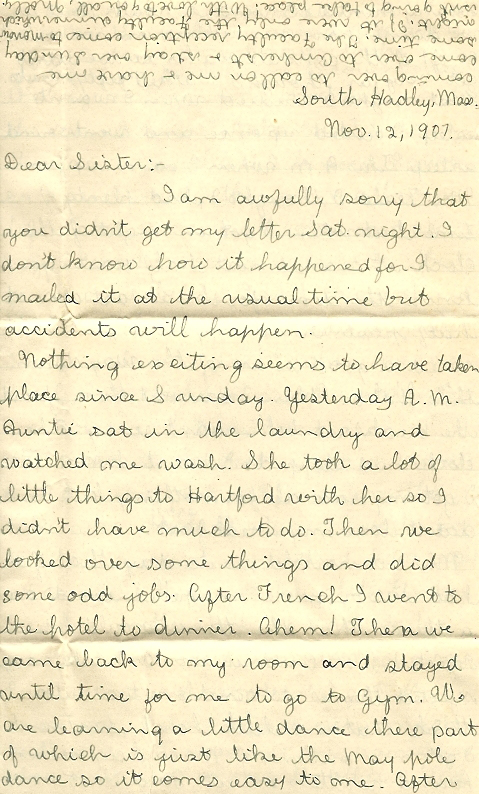 coming over to call on me & have me
come over to Amherst & stay over Sunday
some time. The Faculty reception comes tomorrow
night. If it were only the Faculty
isn't going to take place! With love to you all Molly.
South Hadley, Mass.
Nov. 12, 1907.
Dear Sister:-
I am awfully sorry that
you didn't get my letter Sat. night. I
don't know how it happened for I
mailed it at the usual time but
accidents will happen.
Nothing exciting seems to have taken
place since Sunday. Yesterday A.M.
Auntie sat in the laundry and
watched me wash. She took a lot of
little things to Hartford with her so I
didn't have much to do. Then we
looked over some things and did
some odd jobs. After French I went to
the hotel to dinner. Ahem! Then we
came back to my room and stayed
until time for me to go to Gym. We
are learning a little dance there part
of which is just like the May pole
dance so it comes easy to me. After